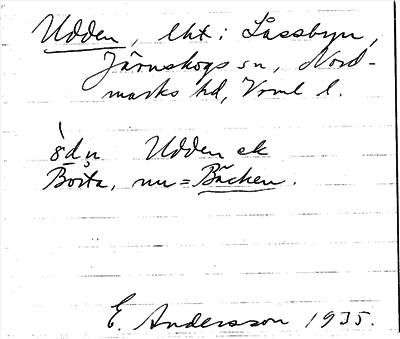 Udden, lht i Låssbyn,
Järnskogs sn, Nord-
marks hd, Vrml l.
Udden ek
Borta, nu = Backen.
E. Andersson 1935.